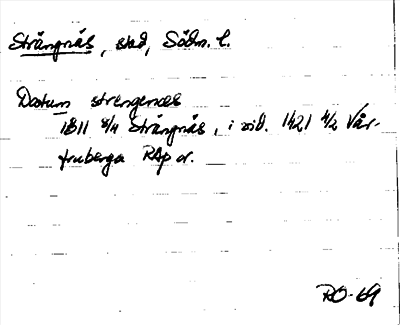 Strängnäs, stad, Södm. l.
Datum strengenæs
1311 8/4 Strängnäs, i vid. 1421 4/2 Vår-
fruberga RAp or.
RO-69